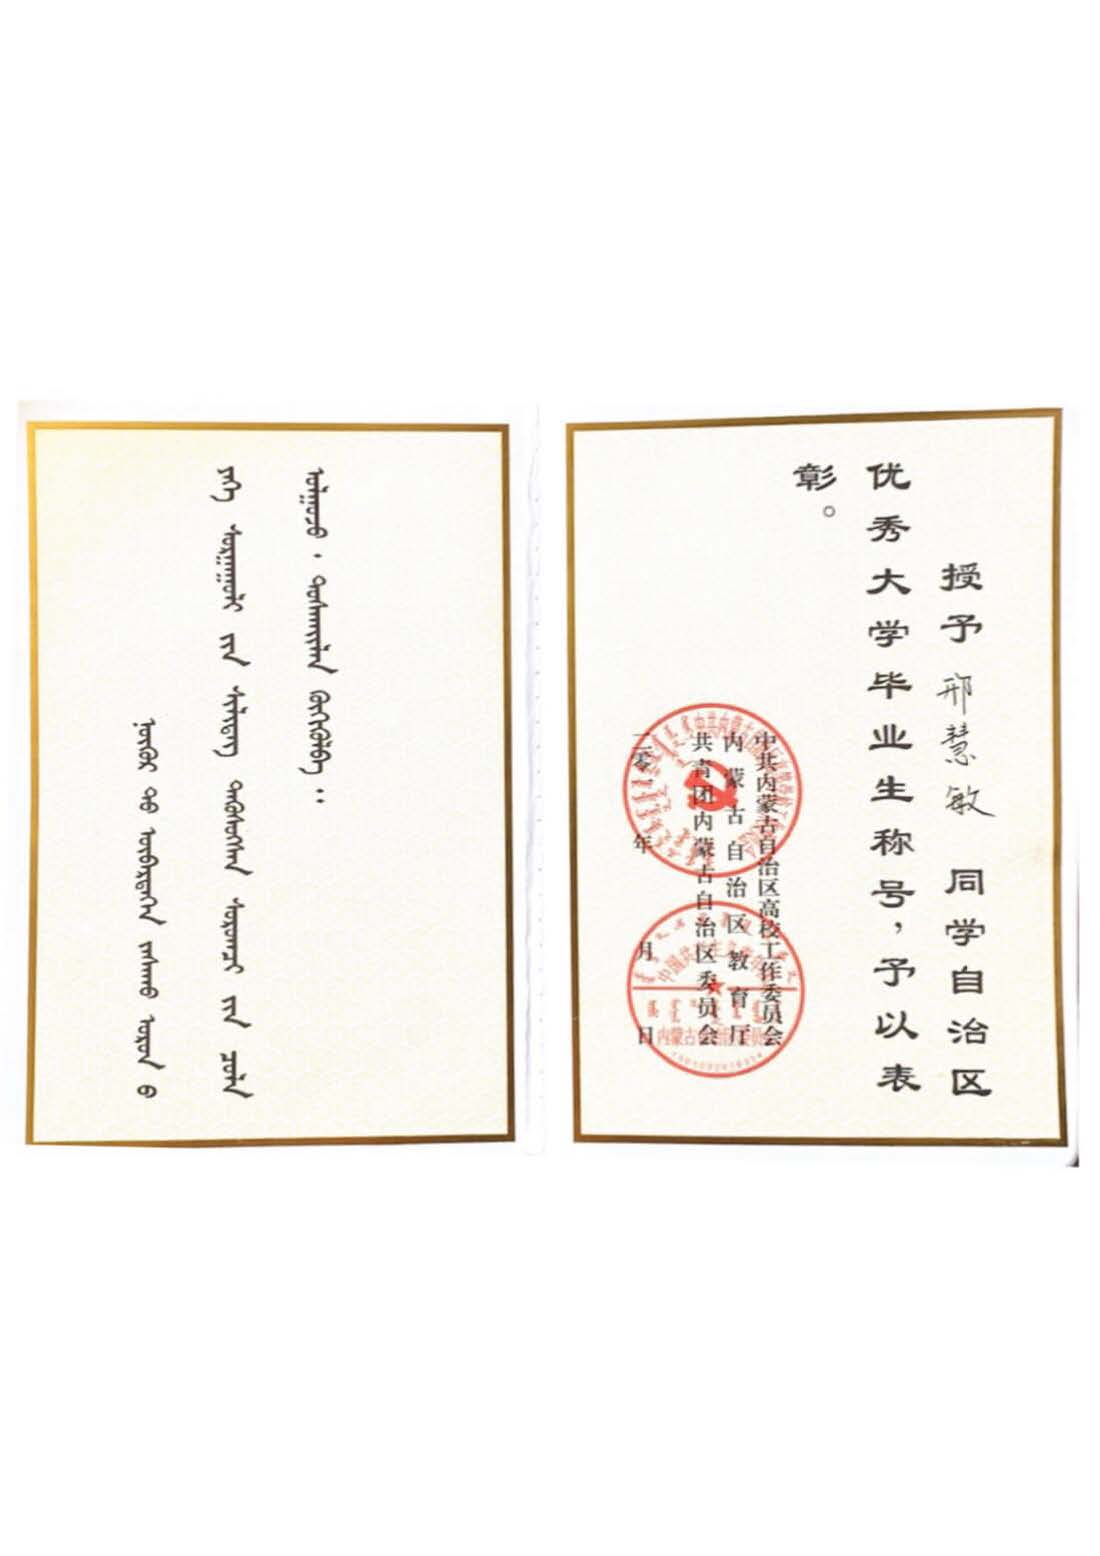 ᠨᠥᠬᠥᠷ ᠲᠦ ᠥᠪᠡᠷᠲᠡᠭᠡᠨ ᠵᠠᠰᠠᠬᠤ ᠣᠷᠣᠨ ᠤ
ᠶᠡᠬᠡ ᠰᠤᠷᠭᠠᠭᠤᠯᠢ ᠶᠢᠨ ᠰᠢᠯᠢᠳᠡᠭ ᠲᠡᠭᠦᠰᠦᠭᠰᠡᠨ ᠰᠤᠷᠤᠭᠴᠢ ᠶᠢᠨ ᠴᠣᠯᠠ
ᠣᠯᠭᠣᠵᠤ᠂ ᠲᠤᠰᠬᠠᠶᠢᠯᠠᠨ
授予 邢慧敏 同学自治区
优秀大学毕业生称号，予以表
彰。
中共内蒙古自治区高校工作委员会
内蒙古自治区教育厅
共青团内蒙古自治区委员会
二零 年 月 日